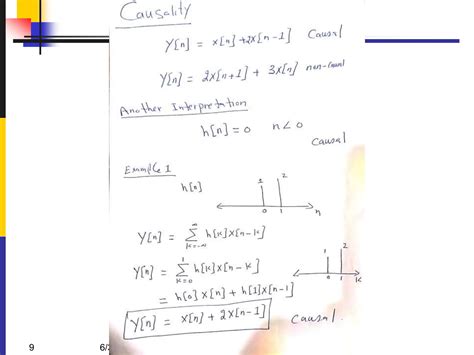 Causality
Y[n] = x[n]+2x[n-1] Causal
Y[n] = 2x[n+1] + 3x[n] non-causal
Another Interpretation
h[n]=0 n<0
Causal
Example 1
h[n]
1 2
0 1 n
Y[n] = ∞∑k=-∞ h[k]x[n-k]
Y[n] = 1∑k=0 h[k]x[n-k]
1 2
0 1 k
= h[0]x[n] + h[1]x[n-1]
Y[n] = x[n] + 2x[n-1] Causal.
9 6/